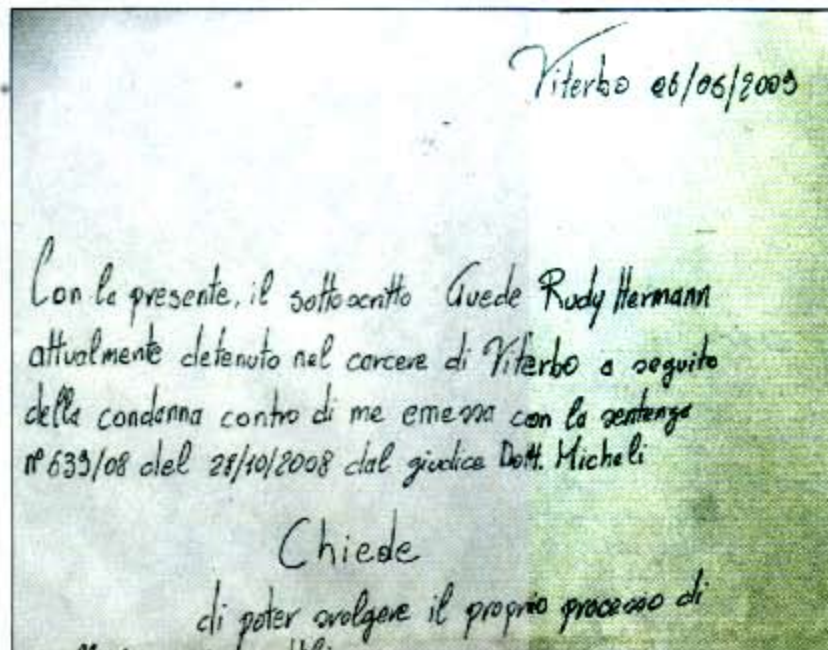 Viterbo 06/06/2009
Con la presente, il sottoscritto Guede Rudy Hermann
attualmente detenuto nel carcere di Viterbo a seguito
della condanna contro di me emessa con la sentenza
n° 639/08 del 28/10/2008 dal giudice Dott. Micheli
Chiede
di poter svolgere il proprio processo di